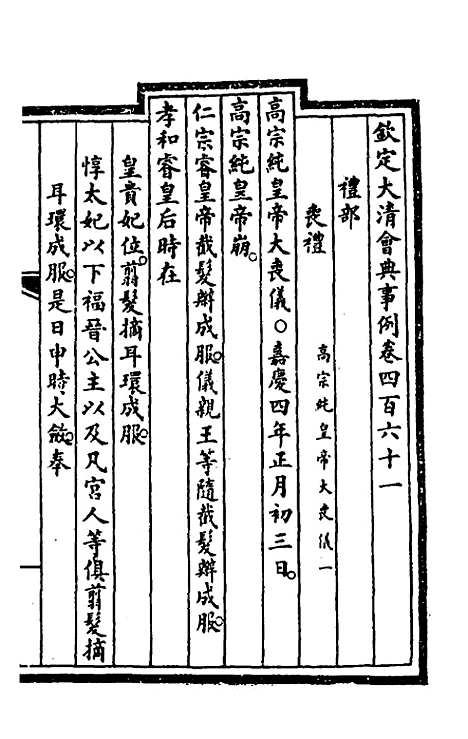 欽定大清會典事例卷四百六十一
禮部
喪禮 高宗純皇帝大喪儀一
高宗純皇帝大喪儀○嘉慶四年正月初三日。
高宗純皇帝崩。
仁宗睿皇帝截髮辮成服。儀親王等隨截髮辮成服。
孝和睿皇后時在
皇貴妃位。翦髮摘耳環成服。
惇太妃以下福晉公主以及凡宮人等俱翦髮摘
耳環成服。是日申時、大斂。奉